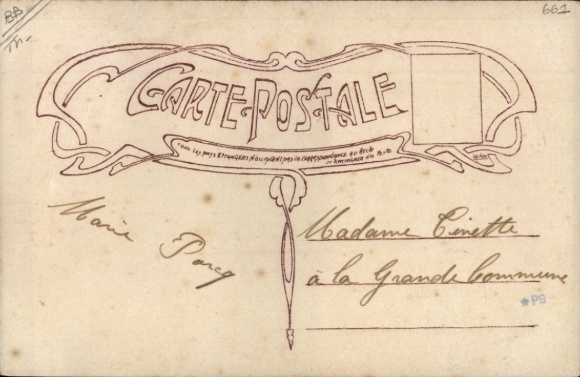 BB
661
CARTE POSTALE
Tous les pays étrangers n'acceptent pas la correspondance au recto
Se renseigner à la Poste
Marie Parcq
Madame Cinette
à la Grande Commune
PB